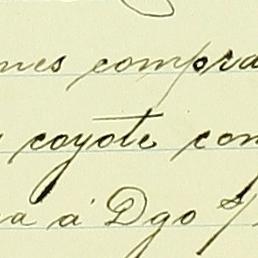 nes compra
coyote con
a á Dgo